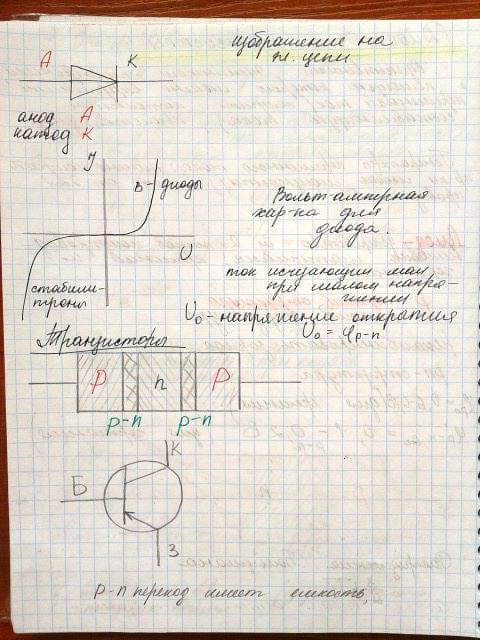 изображение на
эл. цепи
А К
анод А
катод К
I
В-диоды
U
стабили-
троны
Вольт-амперная
хар-ка для
диода.
ток исчезающий мал
при малом напря-
жении
U₀ - напряжение открытия
U₀ = φp-n
Транзисторы
p n p
p-n p-n
К
Б
Э
p-n переход имеет емкость,